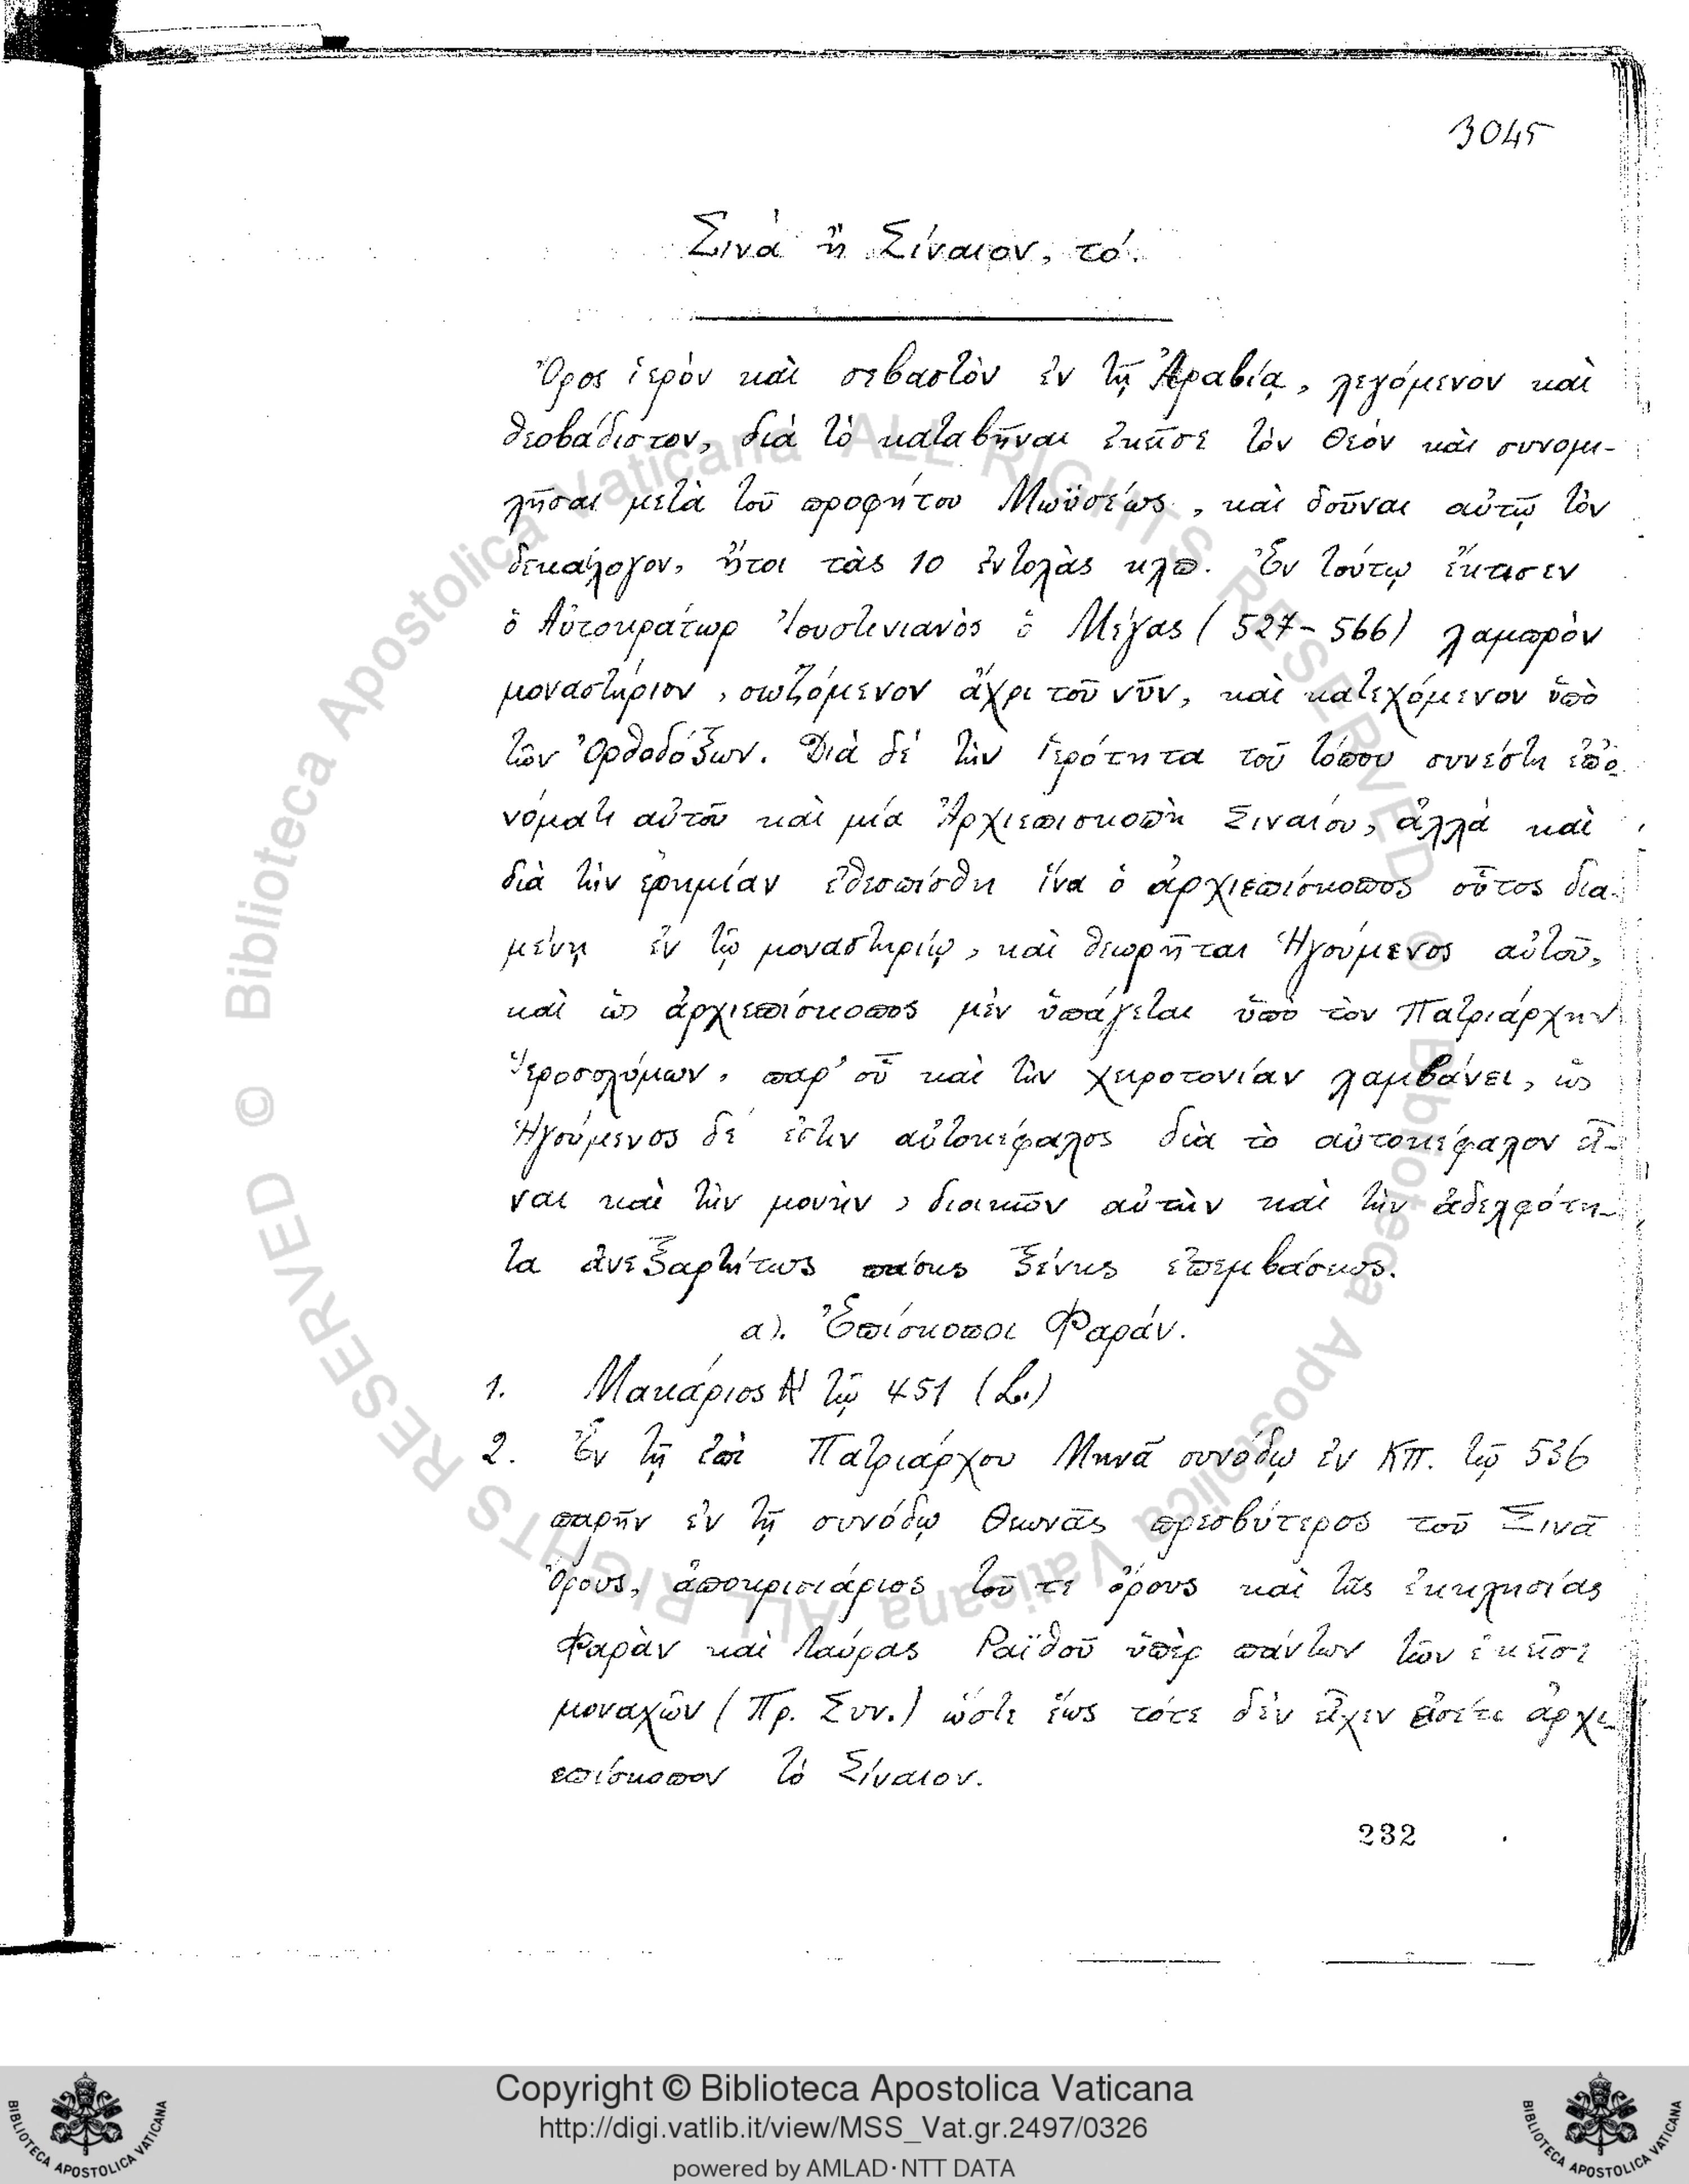 3045
Σινᾶ ἢ Σίναιον, τό.
Ὄρος ἱερὸν καὶ σεβαστὸν ἐν τῇ Ἀραβίᾳ, λεγόμενον καὶ
θεοβάδιστον, διὰ τὸ καταβῆναι ἐκεῖσε τὸν Θεόν καὶ συνομι-
λῆσαι μετὰ τοῦ προφήτου Μωϋσέως, καὶ δοῦναι αὐτῷ τὸν
δεκάλογον, ἤτοι τὰς 10 ἐντολὰς κλπ. Ἐν τούτῳ ἔκτισεν
ὁ Αὐτοκράτωρ Ἰουστινιανὸς ὁ Μέγας (527-566) λαμπρὸν
μοναστήριον, σωζόμενον ἄχρι τοῦ νῦν, καὶ κατεχόμενον ὑπὸ
τῶν Ὀρθοδόξων. Διὰ δέ τὴν ἱερότητα τοῦ τόπου συνέστη ἐπ' ὀ-
νόματι αὐτοῦ καὶ μία Ἀρχιεπισκοπὴ Σιναίου, ἀλλὰ καὶ
διὰ τὴν ἐρημίαν ἐθεσπίσθη ἵνα ὁ ἀρχιεπίσκοπος οὗτος δια-
μένῃ ἐν τῷ μοναστηρίῳ, καὶ θεωρῆται Ἡγούμενος αὐτοῦ,
καὶ ὡς ἀρχιεπίσκοπος μὲν ὑπάγεται ὑπὸ τὸν Πατριάρχην
Ἱεροσολύμων, παρ' οὗ καὶ τὴν χειροτονίαν λαμβάνει, ὡς
Ἡγούμενος δέ ἐστιν αὐτοκέφαλος διὰ τὸ αὐτοκέφαλον εἶ-
ναι καὶ τὴν μονὴν, διοικῶν αὐτὴν καὶ τὴν ἀδελφότη-
τα ἀνεξαρτήτως πάσης ξένης ἐπεμβάσεως.
α). Ἐπίσκοποι Φαράν.
1. Μακάριος Α' τῷ 451 (L.)
2. Ἐν τῇ ἐπὶ Πατριάρχου Μηνᾶ συνόδῳ ἐν ΚΠ. τῷ 536
παρῆν ἐν τῇ συνόδῳ Θεωνᾶς πρεσβύτερος τοῦ Σινᾶ
Ὄρους, ἀποκρισιάριος τοῦ τε ὄρους καὶ τῆς ἐκκλησίας
Φαρὰν καὶ Λαύρας Ραϊθοῦ ὑπὲρ πάντων τῶν ἐκεῖσε
μοναχῶν (Πρ. Συν.) ὥστε ἕως τότε δὲν εἶχεν εἰσέτι ἀρχι-
επίσκοπον τὸ Σίναιον.
232
© Biblioteca Apostolica Vaticana ALL RIGHTS RESERVED © Biblioteca Apostolica Vaticana ALL RIGHTS RESERVED
BIBLIOTECA APOSTOLICA VATICANA
Copyright © Biblioteca Apostolica Vaticana
http://digi.vatlib.it/view/MSS_Vat.gr.2497/0326
powered by AMLAD·NTT DATA
BIBLIOTECA APOSTOLICA VATICANA